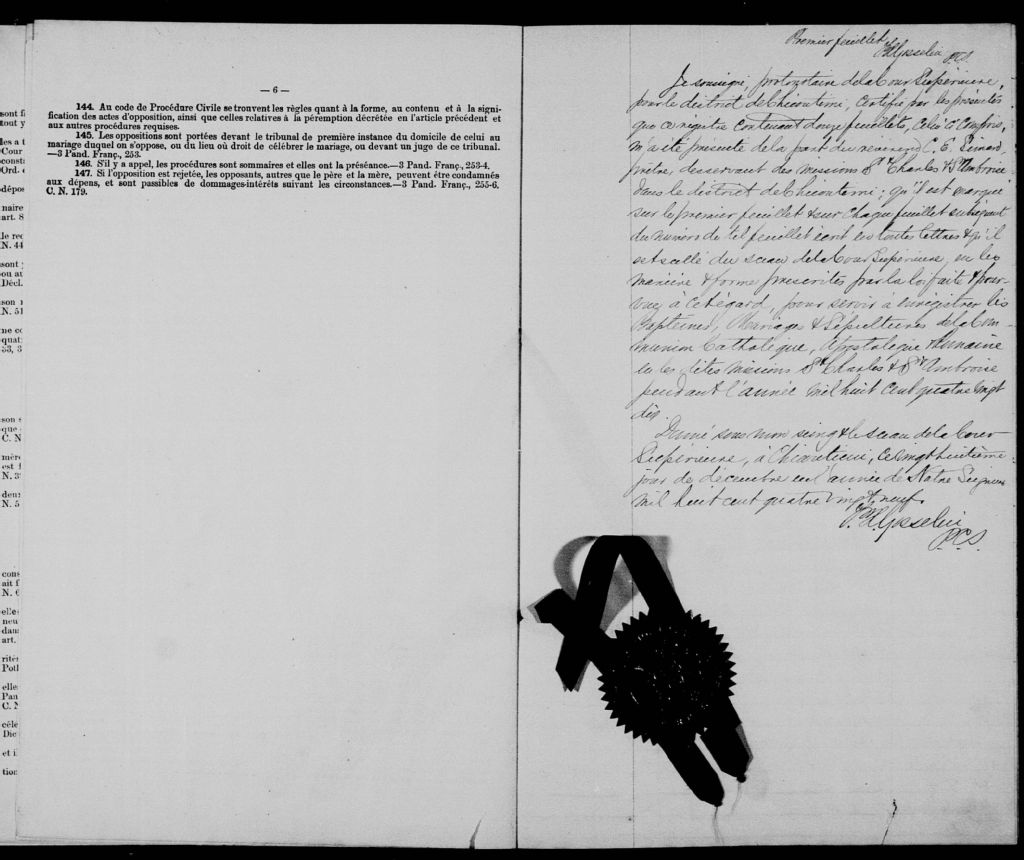 — 6 —
144. Au code de Procédure Civile se trouvent les règles quant à la forme, au contenu et à la signi-
fication des actes d'opposition, ainsi que celles relatives à la péremption décrétée en l'article précédent et
aux autres procédures requises.
145. Les oppositions sont portées devant le tribunal de première instance du domicile de celui au
mariage duquel on s'oppose, ou du lieu où droit de célébrer le mariage, ou devant un juge de ce tribunal.
—3 Pand. Franç., 253.
146. S'il y a appel, les procédures sont sommaires et elles ont la préséance.—3 Pand. Franç., 253-4.
147. Si l'opposition est rejetée, les opposants, autres que le père et la mère, peuvent être condamnés
aux dépens, et sont passibles de dommages-intérêts suivant les circonstances.—3 Pand. Franç., 255-6.
C. N. 179.
Premier feuillet
Gosselin PCS.
Je soussigné protonotaire de la Cour Supérieure,
pour le district de Chicoutimi, Certifie par les présentes
que ce registre contenant douze feuillets, celui-ci compris,
m'a été présenté de la part du révérend C. E.
prêtre, desservant des missions St Charles & St Ambroise
dans le district de Chicoutimi; qu'il est marqué
sur le premier feuillet & sur chaque feuillet subséquent
du numéro de tel feuillet écrit en toutes lettres & qu'il
est scellé du sceau de la Cour Supérieure, en la
manière & forme prescrites par la loi faite & pour-
vue à cet égard, pour servir à enregistrer les
Baptêmes, Mariages & Sépultures de la Com-
munion Catholique, Apostolique & Romaine
en les dites missions St Charles & St Ambroise
pendant l'année mil huit cent quatre vingt
dix.
Donné sous mon seing & le sceau de la Cour
Supérieure, à Chicoutimi, ce vingt huitième
jour de décembre en l'année de Notre Seigneur
mil huit cent quatre vingt neuf.
Gosselin
P.C.S.